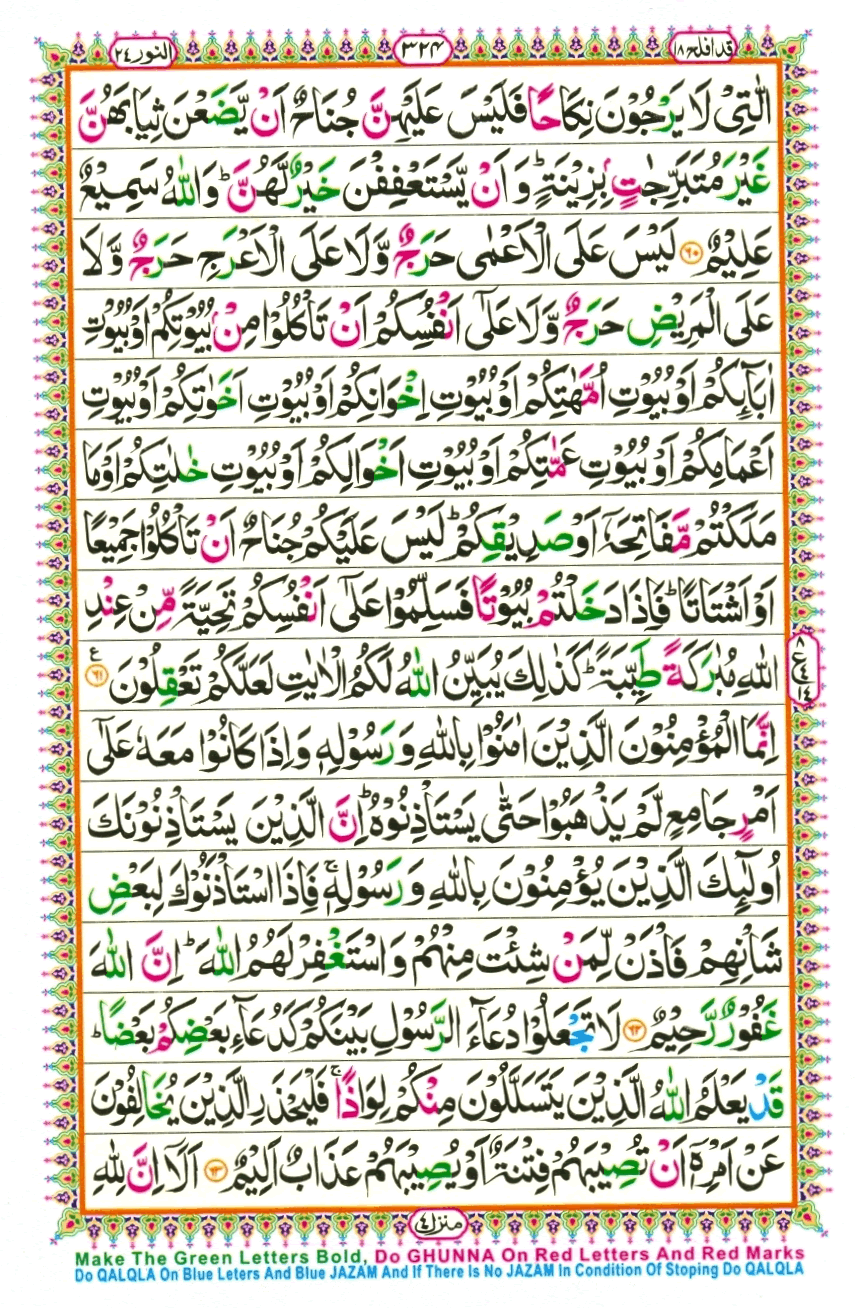 قد افلح ۱۸
۳۲۴
النور ۲۴
الّٰتِیْ لَا یَرْجُوْنَ نِكَاحًا فَلَیْسَ عَلَیْهِنَّ جُنَاحٌ اَنْ یَّضَعْنَ ثِیَابَهُنَّ
غَیْرَ مُتَبَرِّجٰتٍۭ بِزِیْنَةٍ ؕ وَ اَنْ یَّسْتَعْفِفْنَ خَیْرٌ لَّهُنَّ ؕ وَاللّٰهُ سَمِیْعٌ
عَلِیْمٌ ۶۰ لَیْسَ عَلَی الْاَعْمٰی حَرَجٌ وَّلَا عَلَی الْاَعْرَجِ حَرَجٌ وَّلَا
عَلَی الْمَرِیْضِ حَرَجٌ وَّلَا عَلٰۤی اَنْفُسِكُمْ اَنْ تَاْكُلُوْا مِنْۢ بُیُوْتِكُمْ اَوْ بُیُوْتِ
اٰبَآىِٕكُمْ اَوْ بُیُوْتِ اُمَّهٰتِكُمْ اَوْ بُیُوْتِ اِخْوَانِكُمْ اَوْ بُیُوْتِ اَخَوٰتِكُمْ اَوْ بُیُوْتِ
اَعْمَامِكُمْ اَوْ بُیُوْتِ عَمّٰتِكُمْ اَوْ بُیُوْتِ اَخْوَالِكُمْ اَوْ بُیُوْتِ خٰلٰتِكُمْ اَوْ مَا
مَلَكْتُمْ مَّفَاتِحَهٗۤ اَوْ صَدِیْقِكُمْ ؕ لَیْسَ عَلَیْكُمْ جُنَاحٌ اَنْ تَاْكُلُوْا جَمِیْعًا
اَوْ اَشْتَاتًا ؕ فَاِذَا دَخَلْتُمْ بُیُوْتًا فَسَلِّمُوْا عَلٰۤی اَنْفُسِكُمْ تَحِیَّةً مِّنْ عِنْدِ
اللّٰهِ مُبٰرَكَةً طَیِّبَةً ؕ كَذٰلِكَ یُبَیِّنُ اللّٰهُ لَكُمُ الْاٰیٰتِ لَعَلَّكُمْ تَعْقِلُوْنَ ۶۱ ع
۸ ع ۱۴
اِنَّمَا الْمُؤْمِنُوْنَ الَّذِیْنَ اٰمَنُوْا بِاللّٰهِ وَ رَسُوْلِهٖ وَ اِذَا كَانُوْا مَعَهٗ عَلٰۤی
اَمْرٍ جَامِعٍ لَّمْ یَذْهَبُوْا حَتّٰی یَسْتَاْذِنُوْهُ ؕ اِنَّ الَّذِیْنَ یَسْتَاْذِنُوْنَكَ
اُولٰٓىِٕكَ الَّذِیْنَ یُؤْمِنُوْنَ بِاللّٰهِ وَ رَسُوْلِهٖ ۚ فَاِذَا اسْتَاْذَنُوْكَ لِبَعْضِ
شَاْنِهِمْ فَاْذَنْ لِّمَنْ شِئْتَ مِنْهُمْ وَ اسْتَغْفِرْ لَهُمُ اللّٰهَ ؕ اِنَّ اللّٰهَ
غَفُوْرٌ رَّحِیْمٌ ۶۲ لَا تَجْعَلُوْا دُعَآءَ الرَّسُوْلِ بَیْنَكُمْ كَدُعَآءِ بَعْضِكُمْ بَعْضًا ؕ
قَدْ یَعْلَمُ اللّٰهُ الَّذِیْنَ یَتَسَلَّلُوْنَ مِنْكُمْ لِوَاذًا ۚ فَلْیَحْذَرِ الَّذِیْنَ یُخَالِفُوْنَ
عَنْ اَمْرِهٖۤ اَنْ تُصِیْبَهُمْ فِتْنَةٌ اَوْ یُصِیْبَهُمْ عَذَابٌ اَلِیْمٌ ۶۳ اَلَاۤ اِنَّ لِلّٰهِ
منزل ۴
Make The Green Letters Bold, Do GHUNNA On Red Letters And Red Marks
Do QALQLA On Blue Leters And Blue JAZAM And If There Is No JAZAM In Condition Of Stoping Do QALQLA